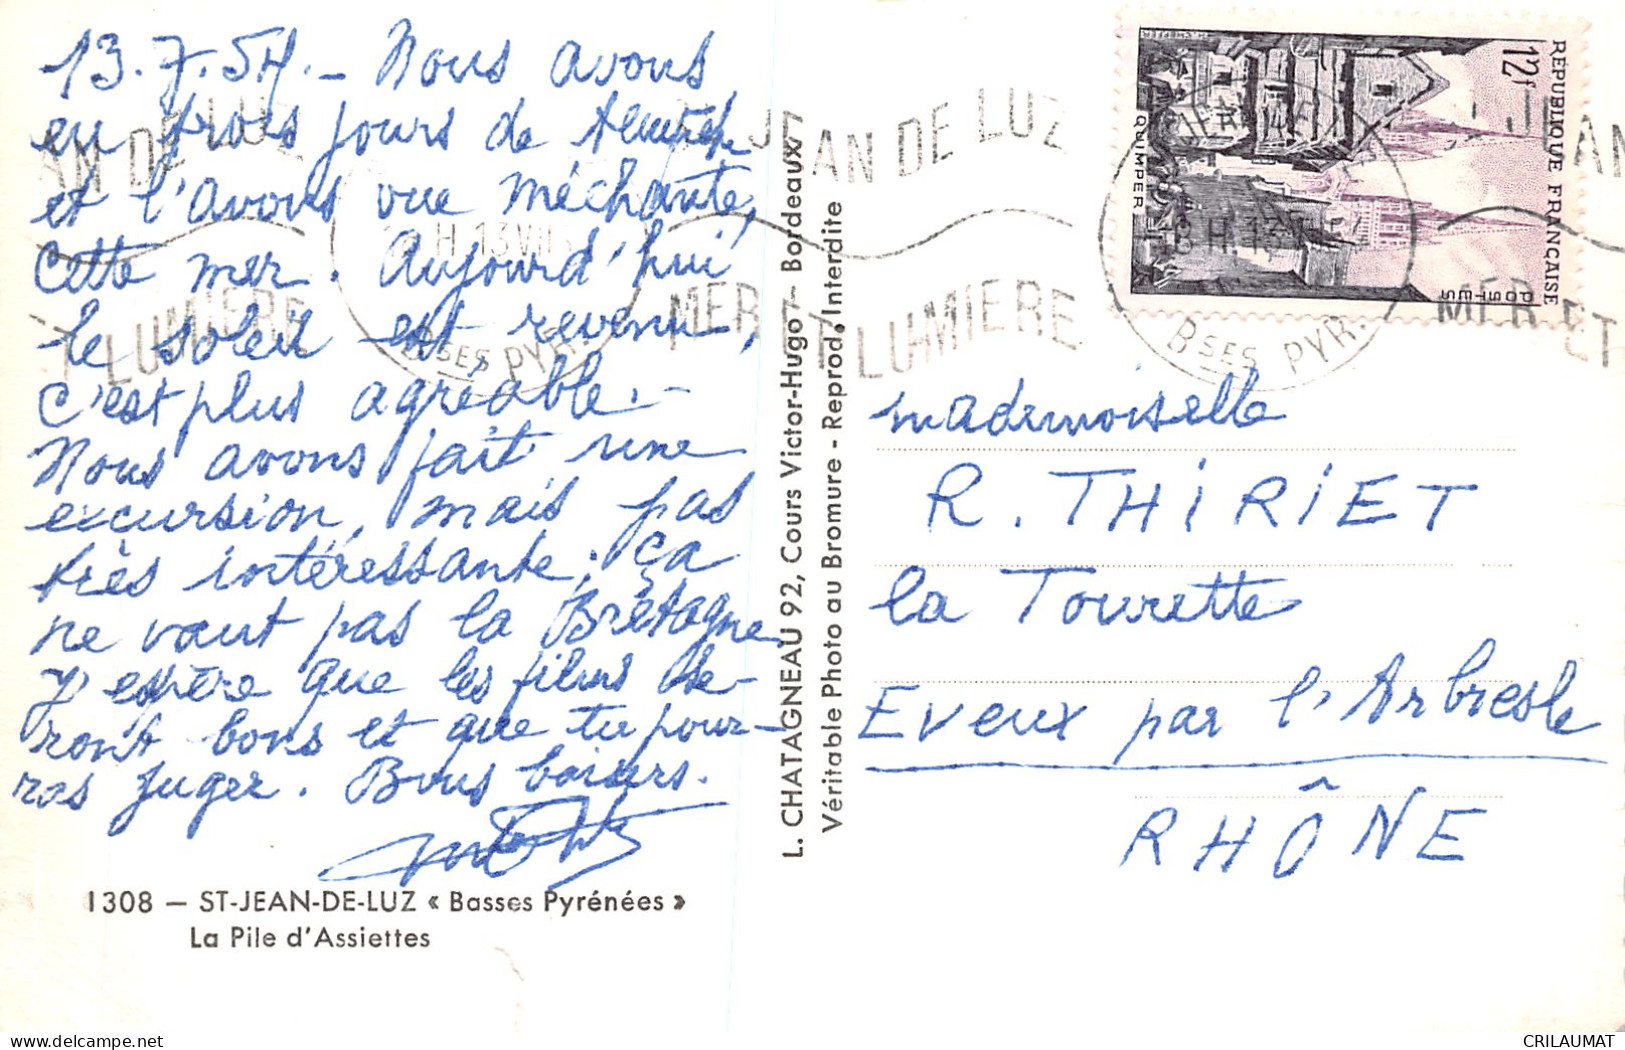 13.7.54. - Nous avons
eu trois jours de tempête
et l'avons vue méchante,
cette mer. Aujourd'hui
le soleil est revenu,
c'est plus agréable. -
Nous avons fait une
excursion, mais pas
très intéressante, ça
ne vaut pas la Bretagne
J'espère que les films se-
ront bons et que tu pour-
ras juger. Bons baisers.
1308 — ST-JEAN-DE-LUZ « Basses Pyrénées »
La Pile d'Assiettes
L. CHATAGNEAU 92, Cours Victor-Hugo - Bordeaux
Véritable Photo au Bromure - Reprod. Interdite
RÉPUBLIQUE FRANÇAISE
12f
POSTES
QUIMPER
AN DE LUZ
MER ET LUMIERE
H 13 VII
Bses PYR.
Mademoiselle
R. THIRIET
la Tourette
Eveux par l'Arbresle
RHÔNE
CRILAUMAT